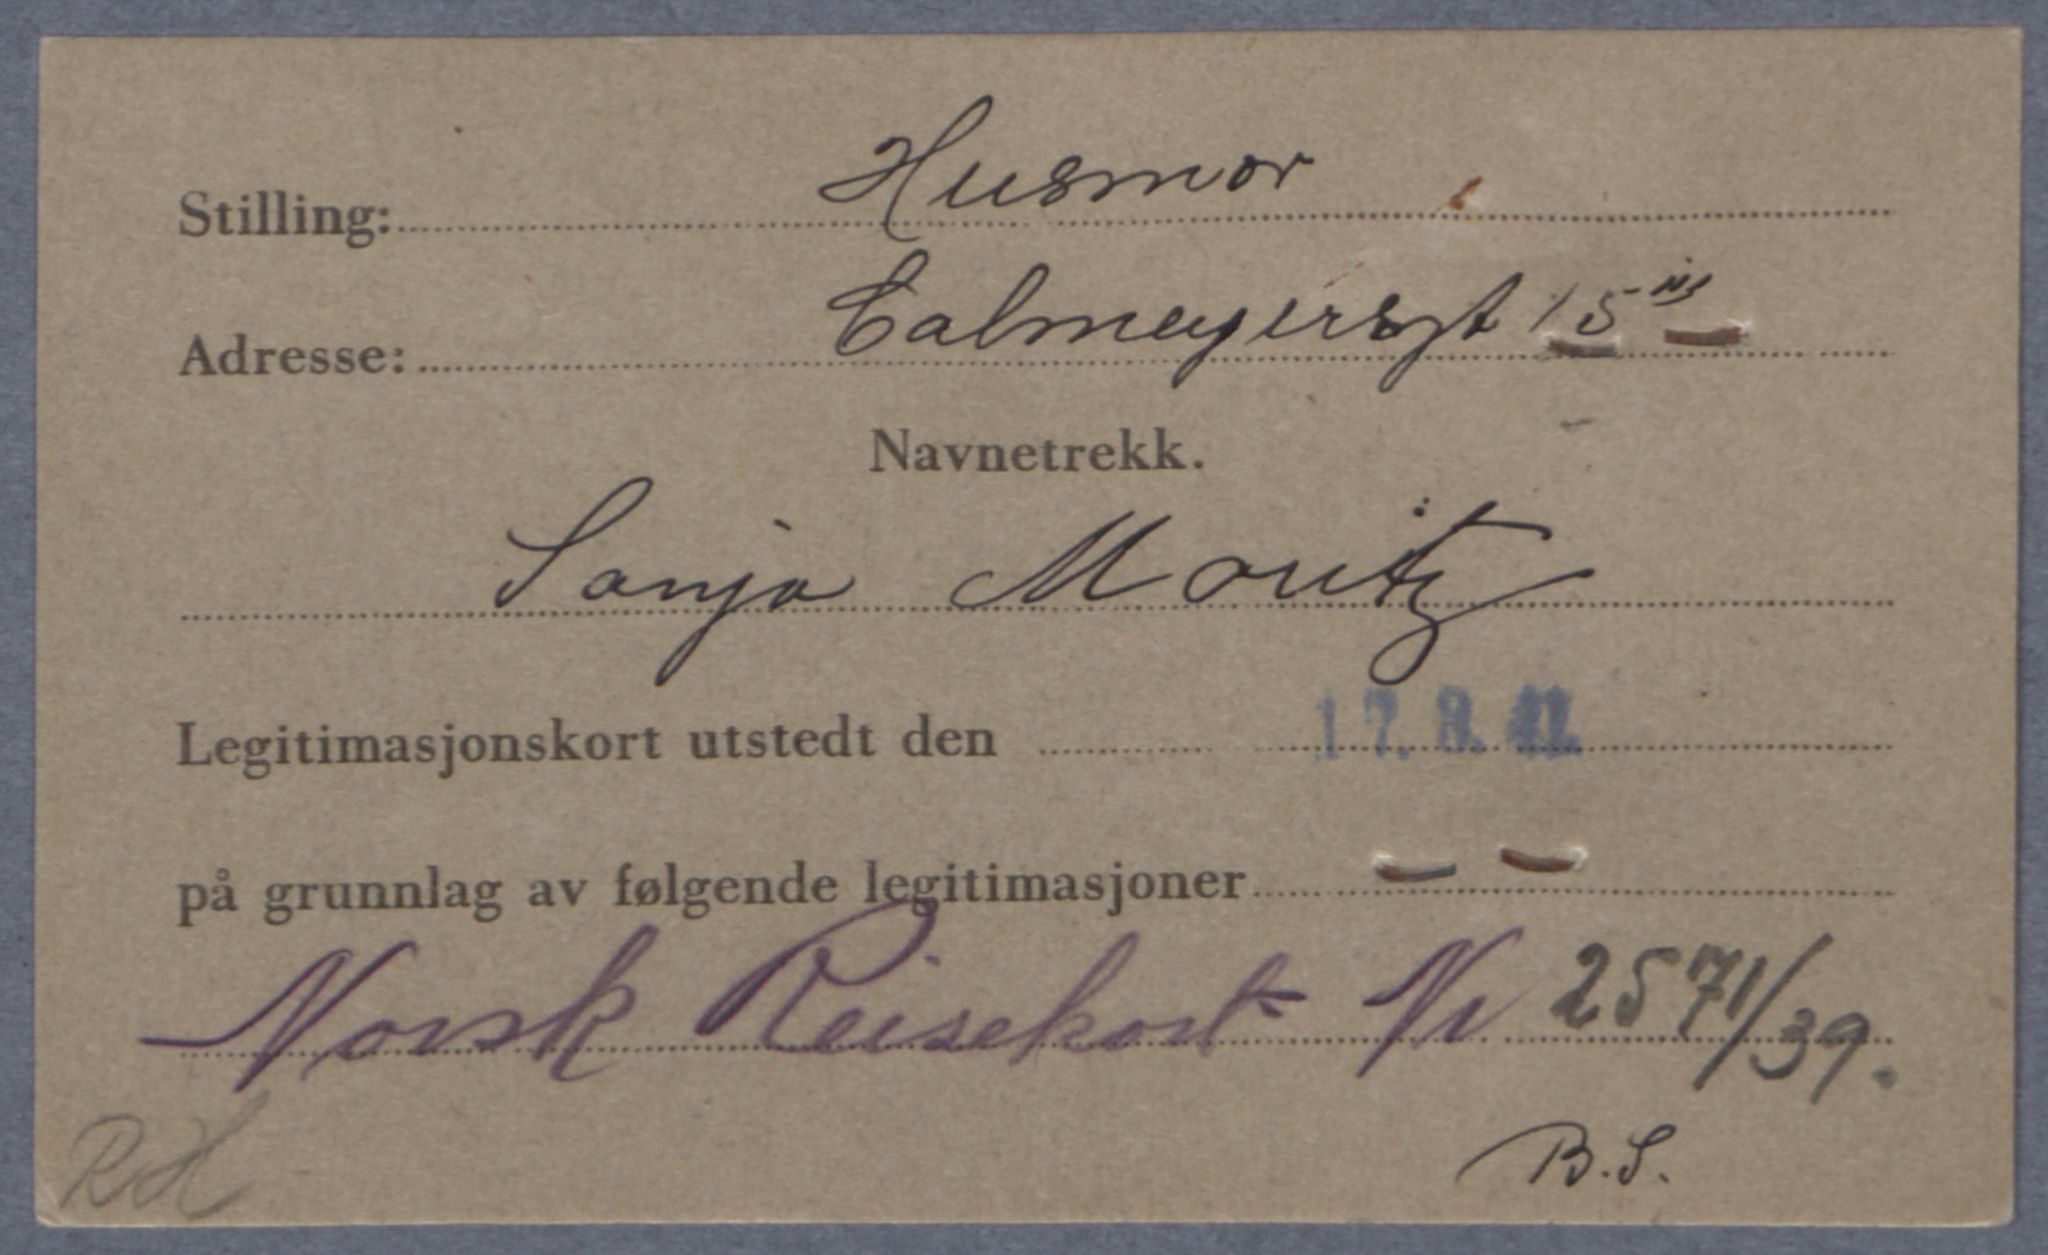 Stilling: Husmor
Adresse: Calmeyersgt 15
Navnetrekk.
Sonja Moritz
Legitimasjonskort utstedt den 17. 8. 42.
på grunnlag av følgende legitimasjoner
Norsk Reisekort Nr 2571/39.
RH
B.S.